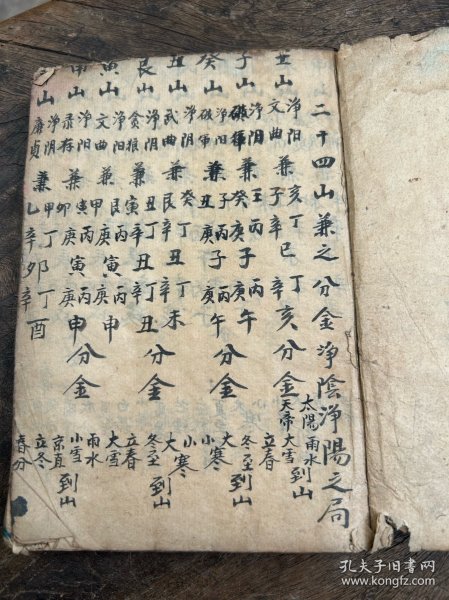 二十四山兼之分金淨陰淨陽之局
壬山淨阳文曲兼亥子丁辛巳丁辛亥分金太陽雨水天帝大雪到山
子山淨阳破軍兼壬癸丙庚子丙庚午立春冬至
癸山淨阳破軍兼子丑丙庚子丙庚午分金大寒小寒到山
丑山淨阴武曲兼癸艮丁辛丑丁辛未大寒小寒
艮山淨阴貪狼兼丑寅丁辛丑丁辛丑分金立春冬至到山
寅山淨阳文曲兼艮甲丙庚寅丙庚申雨水大雪
甲山淨阳录存兼寅卯丙庚寅丙庚申分金京直小雪到山
山淨阴廉貞兼甲乙丁辛卯丁辛酉春分立冬
孔夫子旧书网
www.kongfz.com